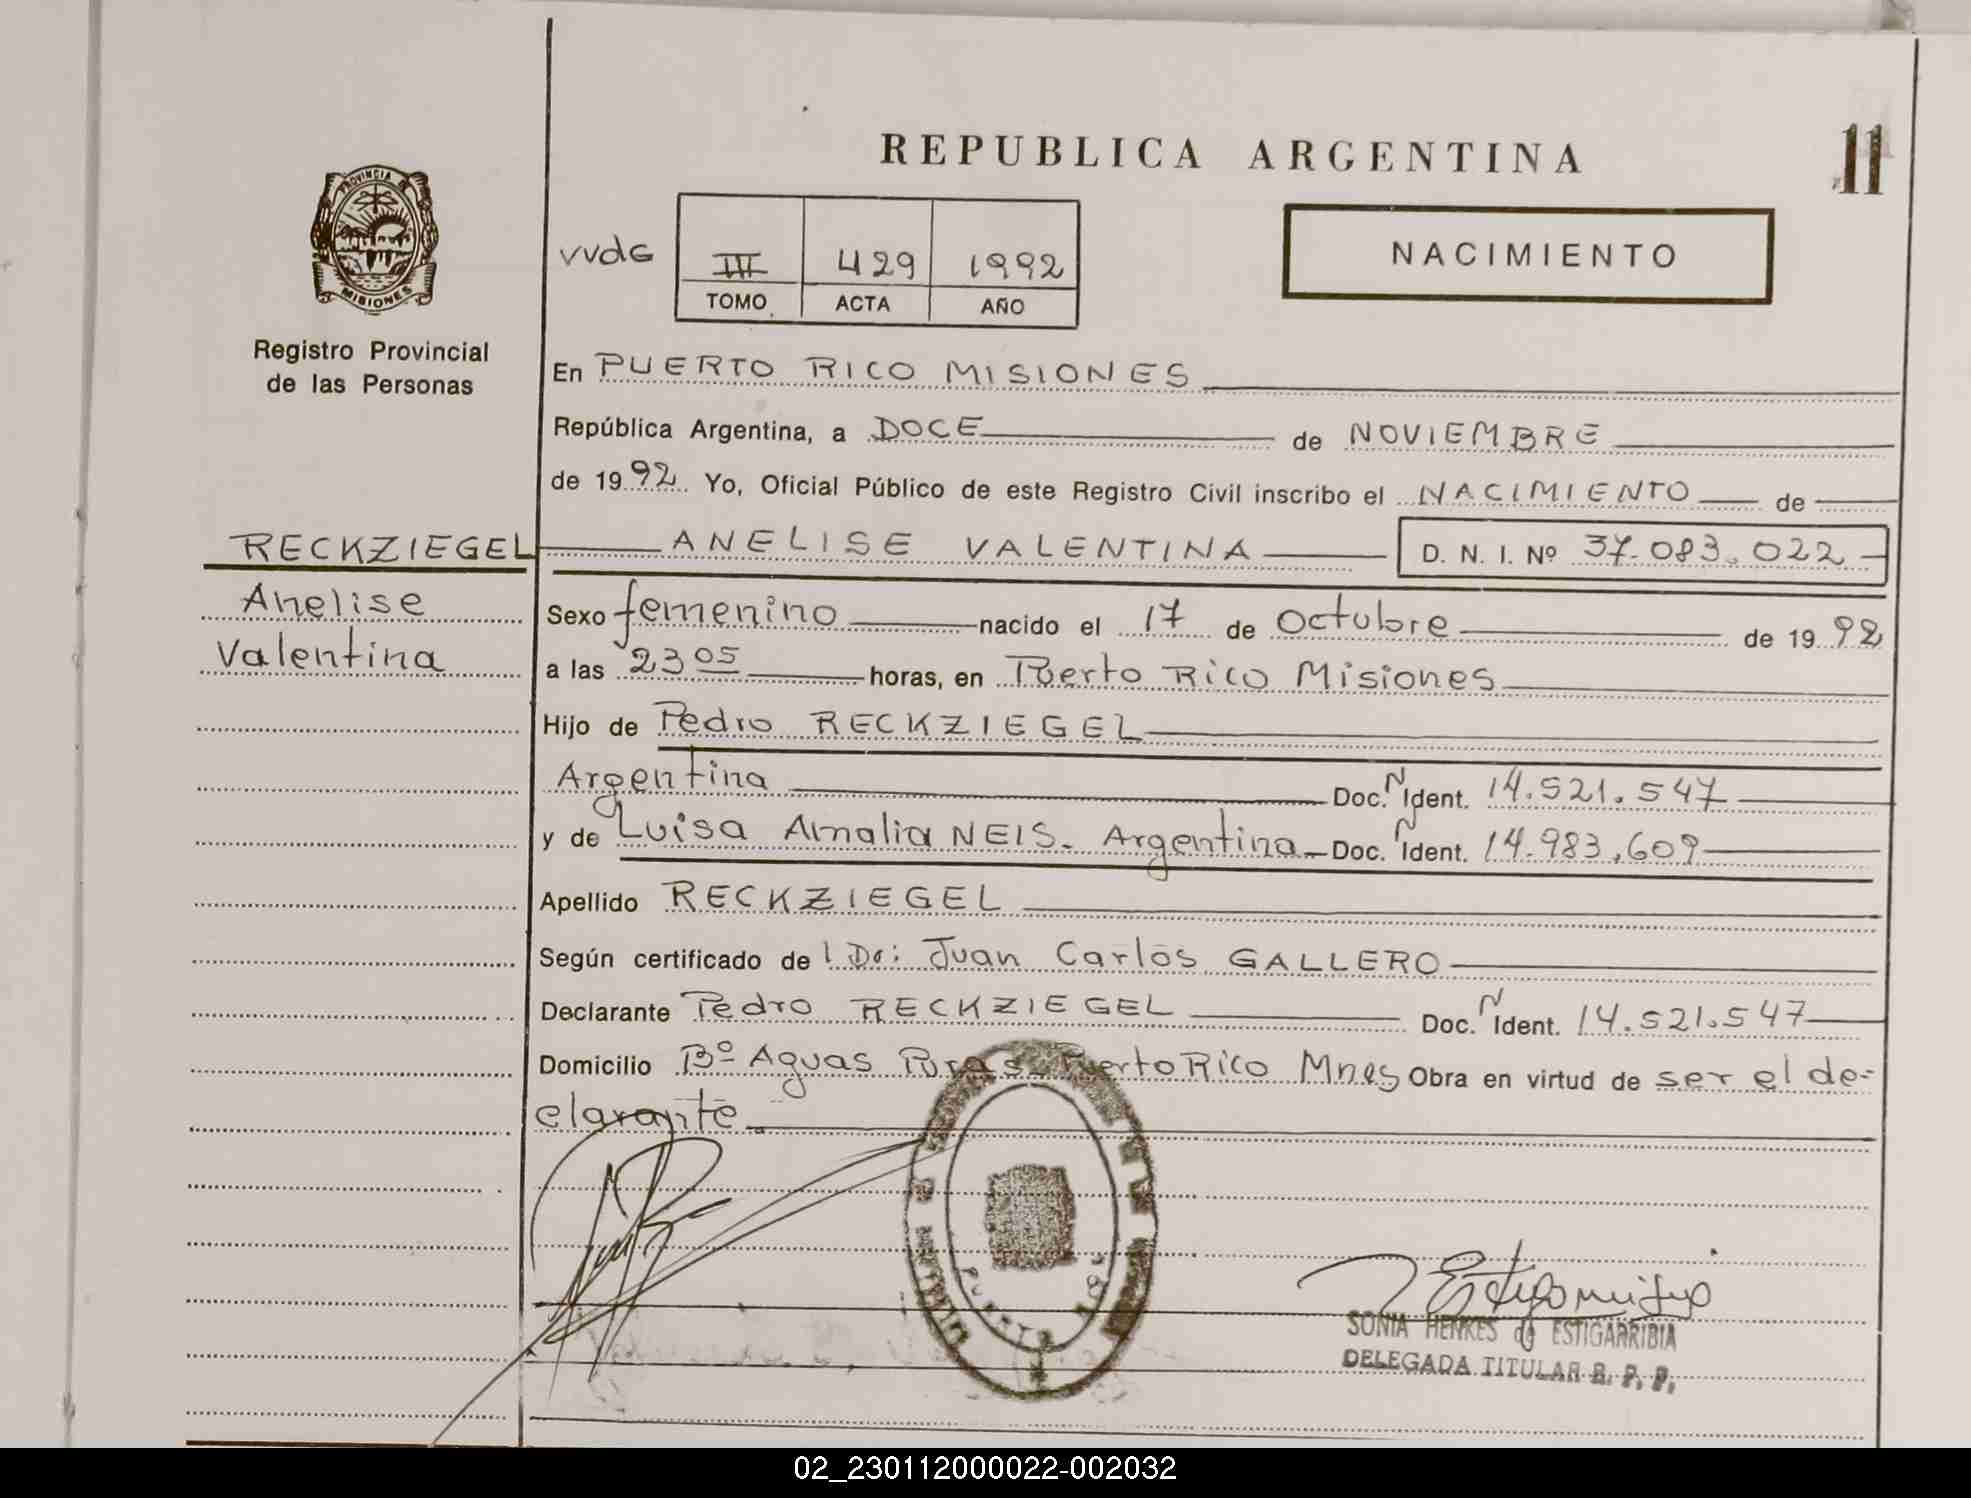 REPUBLICA ARGENTINA
11
PROVINCIA DE
MISIONES
Registro Provincial
de las Personas
vvdG
III 429 1992
TOMO ACTA AÑO
NACIMIENTO
En PUERTO RICO MISIONES
República Argentina, a DOCE de NOVIEMBRE
de 1992 Yo, Oficial Público de este Registro Civil inscribo el NACIMIENTO de
RECKZIEGEL ANELISE VALENTINA D. N. I. Nº 37.083.022
Anelise
Valentina
Sexo femenino nacido el 17 de octubre de 1992
a las 23 05 horas, en Puerto Rico Misiones
Hijo de Pedro RECKZIEGEL
Argentina Doc. N Ident. 14.521.547
y de Luisa Amalia NEIS. Argentina Doc. N Ident. 14.983.609
Apellido RECKZIEGEL
Según certificado de l Dr: Juan Carlos GALLERO
Declarante Pedro RECKZIEGEL Doc. N Ident. 14.521.547
Domicilio Bº Aguas Puras Puerto Rico Mnes Obra en virtud de ser el de-
clarante
PUERTO RICO
SONIA HENKES de ESTIGARRIBIA
DELEGADA TITULAR R. P. P.
02_230112000022-002032